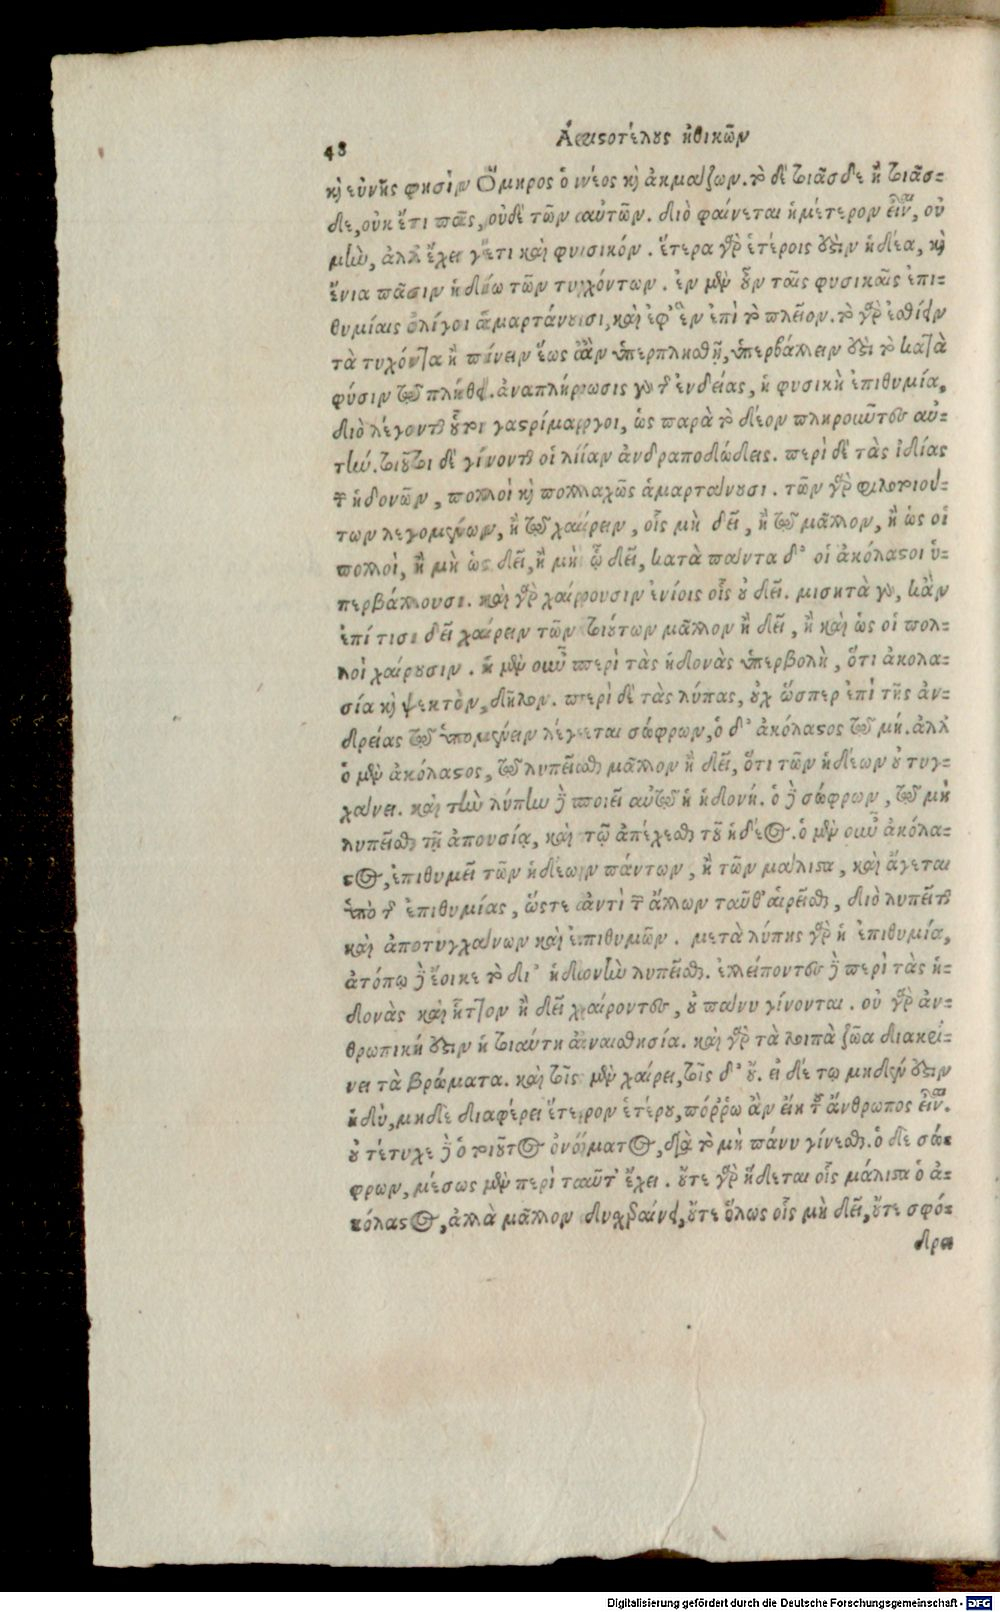 48 Ἀριστοτέλους ἠθικῶν
καὶ εὐνῆς φησὶν Ὅμηρος ὁ νέος καὶ ἀκμάζων. τὸ δὲ τοιᾶσδε ἢ τοιᾶσ-
δε, οὐκ ἔτι πᾶς, οὐδὲ τῶν αὐτῶν. διὸ φαίνεται ἡμέτερον εἶναι, οὐ
μὴν, ἀλλ' ἔχει γέ τι καὶ φυσικόν. ἕτερα γὰρ ἑτέροις ἐστὶν ἡδέα, καὶ
ἔνια πᾶσιν ἡδίω τῶν τυχόντων. ἐν μὲν οὖν ταῖς φυσικαῖς ἐπι-
θυμίαις ὀλίγοι ἁμαρτάνουσι, καὶ ἐφ' ἓν ἐπὶ τὸ πλεῖον. τὸ γὰρ ἐσθίειν
τὰ τυχόντα ἢ πίνειν ἕως ἂν ὑπερπλησθῇ, ὑπερβάλλειν ἐστὶ τὸ κατὰ
φύσιν τῷ πλήθει. ἀναπλήρωσις γὰρ τῆς ἐνδείας, ἡ φυσικὴ ἐπιθυμία,
διὸ λέγονται οὗτοι γαστρίμαργοι, ὡς παρὰ τὸ δέον πληροῦντες αὐ-
τήν. τοιοῦτοι δὲ γίνονται οἱ λίαν ἀνδραποδώδεις. περὶ δὲ τὰς ἰδίας
τῶν ἡδονῶν, πολλοὶ καὶ πολλαχῶς ἁμαρτάνουσι. τῶν γὰρ φιλοτοιού-
των λεγομένων, ἢ τῷ χαίρειν, οἷς μὴ δεῖ, ἢ τῷ μᾶλλον, ἢ ὡς οἱ
πολλοὶ, ἢ μὴ ὡς δεῖ, ἢ μὴ ᾧ δεῖ, κατὰ πάντα δ' οἱ ἀκόλαστοι ὑ-
περβάλλουσι. καὶ γὰρ χαίρουσιν ἐνίοις οἷς οὐ δεῖ. μισητὰ γὰρ, κἂν
ἐπί τισι δεῖ χαίρειν τῶν τοιούτων μᾶλλον ἢ δεῖ, ἢ καὶ ὡς οἱ πολ-
λοὶ χαίρουσιν. ἡ μὲν οὖν περὶ τὰς ἡδονὰς ὑπερβολὴ, ὅτι ἀκολα-
σία καὶ ψεκτὸν, δῆλον. περὶ δὲ τὰς λύπας, οὐχ ὥσπερ ἐπὶ τῆς ἀν-
δρείας τῷ ὑπομένειν λέγεται σώφρων, ὁ δ' ἀκόλαστος τῷ μή. ἀλλ'
ὁ μὲν ἀκόλαστος, τῷ λυπεῖσθαι μᾶλλον ἢ δεῖ, ὅτι τῶν ἡδέων οὐ τυγ-
χάνει. καὶ τὴν λύπην δὲ ποιεῖ αὐτῷ ἡ ἡδονή. ὁ δὲ σώφρων, τῷ μὴ
λυπεῖσθαι τῇ ἀπουσίᾳ, καὶ τῷ ἀπέχεσθαι τοῦ ἡδέος. ὁ μὲν οὖν ἀκόλα-
στος, ἐπιθυμεῖ τῶν ἡδέων πάντων, ἢ τῶν μάλιστα, καὶ ἄγεται
ὑπὸ τῆς ἐπιθυμίας, ὥστε ἀντὶ τῶν ἄλλων ταῦθ' αἱρεῖσθαι, διὸ λυπεῖται
καὶ ἀποτυγχάνων καὶ ἐπιθυμῶν. μετὰ λύπης γὰρ ἡ ἐπιθυμία,
ἀτόπῳ δὲ ἔοικε τὸ δι' ἡδονὴν λυπεῖσθαι. ἐλλείποντες δὲ περὶ τὰς ἡ-
δονὰς καὶ ἧττον ἢ δεῖ χαίροντες, οὐ πάνυ γίνονται. οὐ γὰρ ἀν-
θρωπική ἐστιν ἡ τοιαύτη ἀναισθησία. καὶ γὰρ τὰ λοιπὰ ζῶα διακρί-
νει τὰ βρώματα. καὶ τοῖς μὲν χαίρει, τοῖς δ' οὔ. εἰ δέ τῳ μηδέν ἐστιν
ἡδὺ, μηδὲ διαφέρει ἕτερον ἑτέρου, πόῤῥω ἂν εἴη τοῦ ἄνθρωπος εἶναι.
οὐ τέτυχε δὲ ὁ τοιοῦτος ὀνόματος, διὰ τὸ μὴ πάνυ γίνεσθαι. ὁ δὲ σώ-
φρων, μέσως μὲν περὶ ταῦτ' ἔχει. οὔτε γὰρ ἥδεται οἷς μάλιστα ὁ ἀ-
κόλαστος, ἀλλὰ μᾶλλον δυσχεραίνει, οὔτε ὅλως οἷς μὴ δεῖ, οὔτε σφό-
δρα
Digitalisierung gefördert durch die Deutsche Forschungsgemeinschaft - DFG